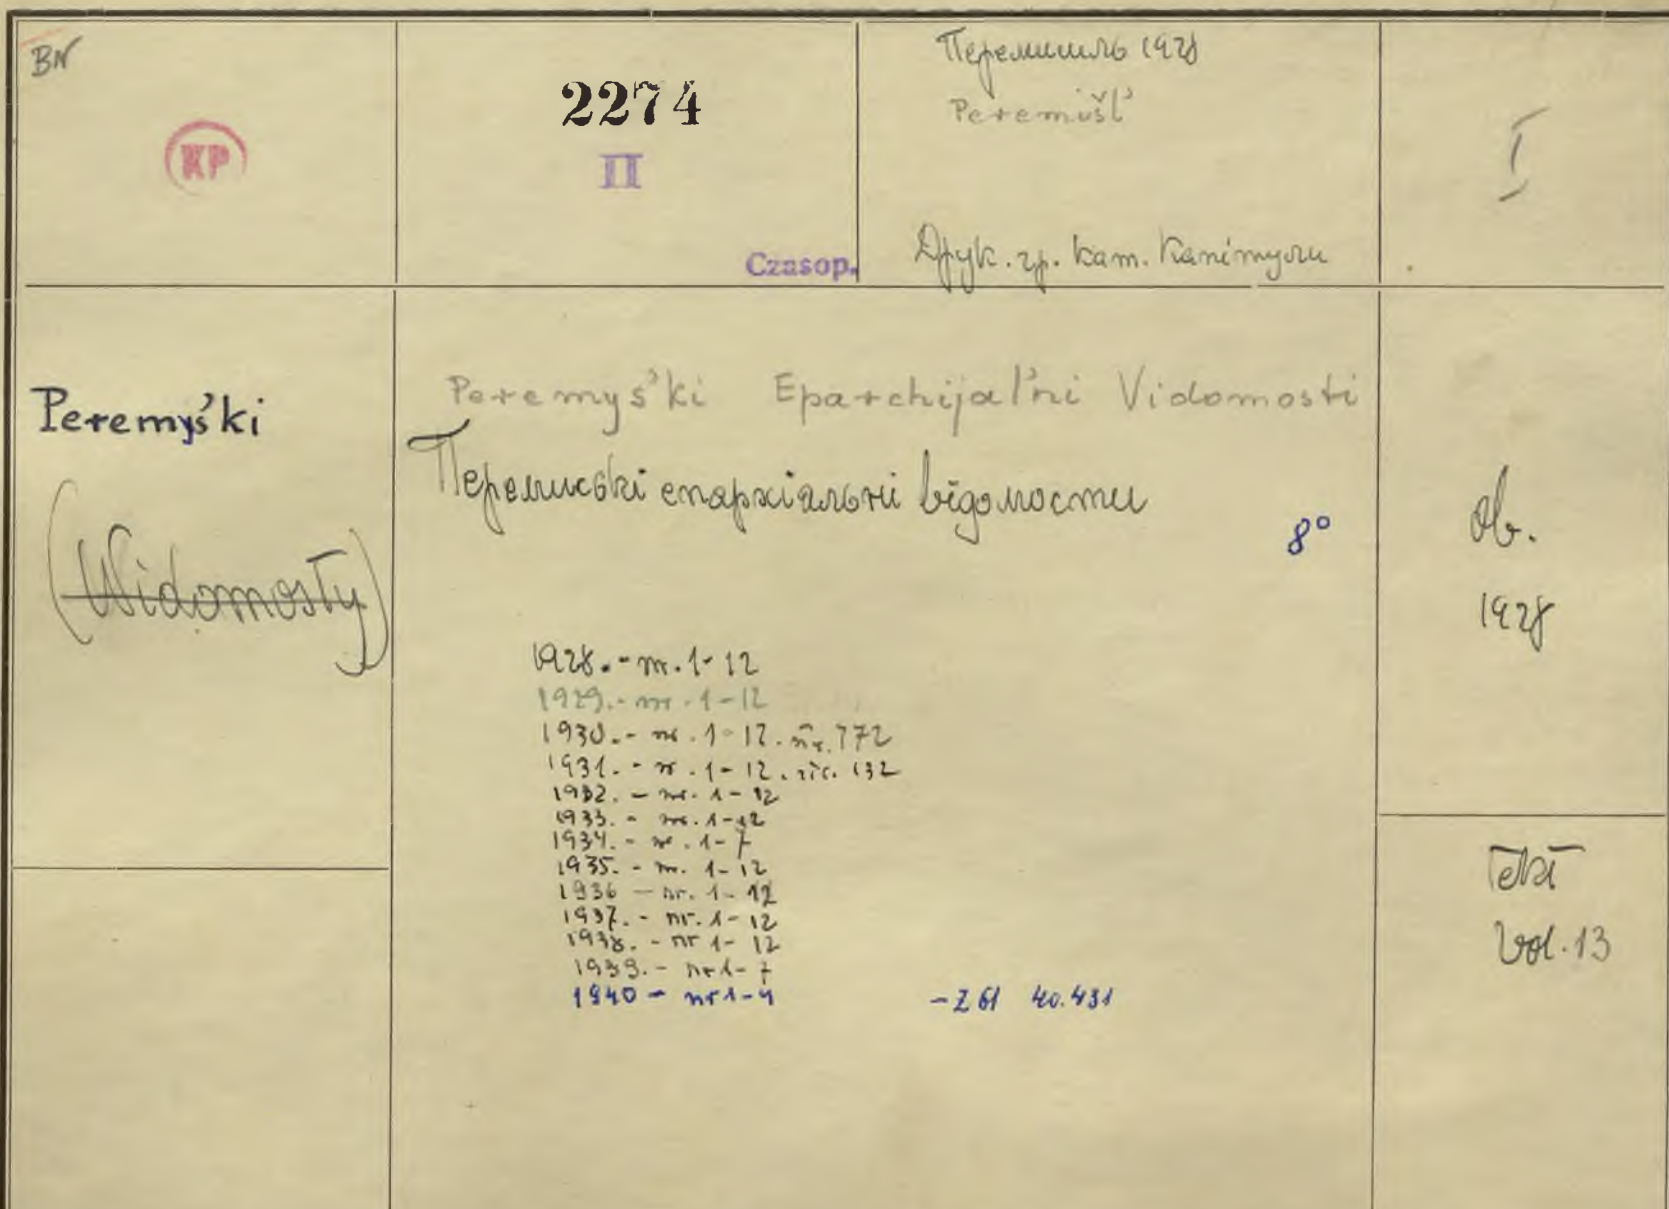 BN
KP
2274
II
Czasop.
Перемишль 1928
Peremüšl'
Друк. гр. кат. Капітули
I
Peremyśki
(Widomosty)
Peremyśki Eparchijal'ni Vidomosti
Перемиські епархіяльні відомости
8°
ob.
1928
1928. - nr. 1-12
1929. - nr. 1-12
1930. - nr. 1-12. nr. 772
1931. - nr. 1-12. 132
1932. - nr. 1-12
1933. - nr. 1-12
1934. - nr. 1-7
1935. - nr. 1-12
1936 - nr. 1-12
1937. - nr. 1-12
1938. - nr 1-12
1939. - nr 1-7
1940 - nr 1-4 - Z 61 40.431
vol. 13